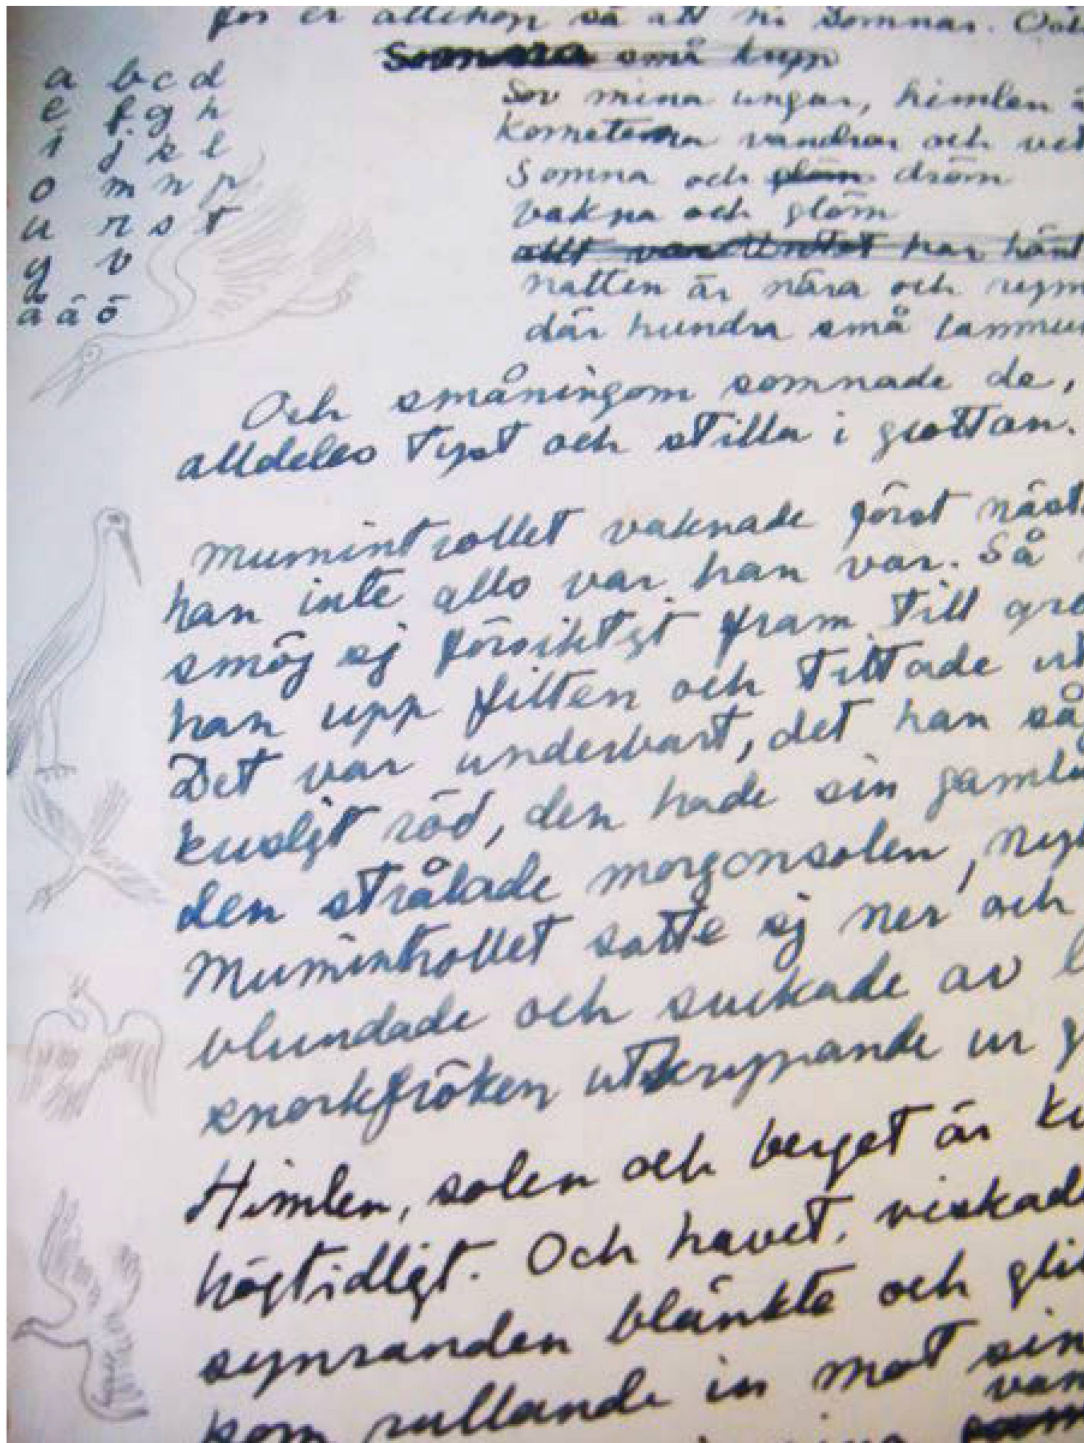 för er allihop så att ni somnar. Och
små kryp
a b c d
e f g h
i j k l
o m n p
u r s t
y v
å ä ö
Sov mina ungar, himlen ä
Kometerna vandrar och vet
Somna och glöm dröm
vakna och glöm
allt har hänt
natten är nära och rym
där hundra små lammun
Och småningom somnade de,
alldeles tyst och stilla i grottan.
Mumintrollet vaknade först näst
han inte alls var han var. Så
smög sj försiktigt fram till gro
han upp filten och tittade ut
Det var underbart, det han så
kusligt röd, den hade sin gamla
den strålade morgonsolen, ny
Mumintrollet satte sj ner och
blundade och suckade av l
snorkfröken utkrypande ur g
Himlen, solen och berget är
högtidligt. Och havet, viskad
synranden blänkte och gli
kom rullande in mot sin
van